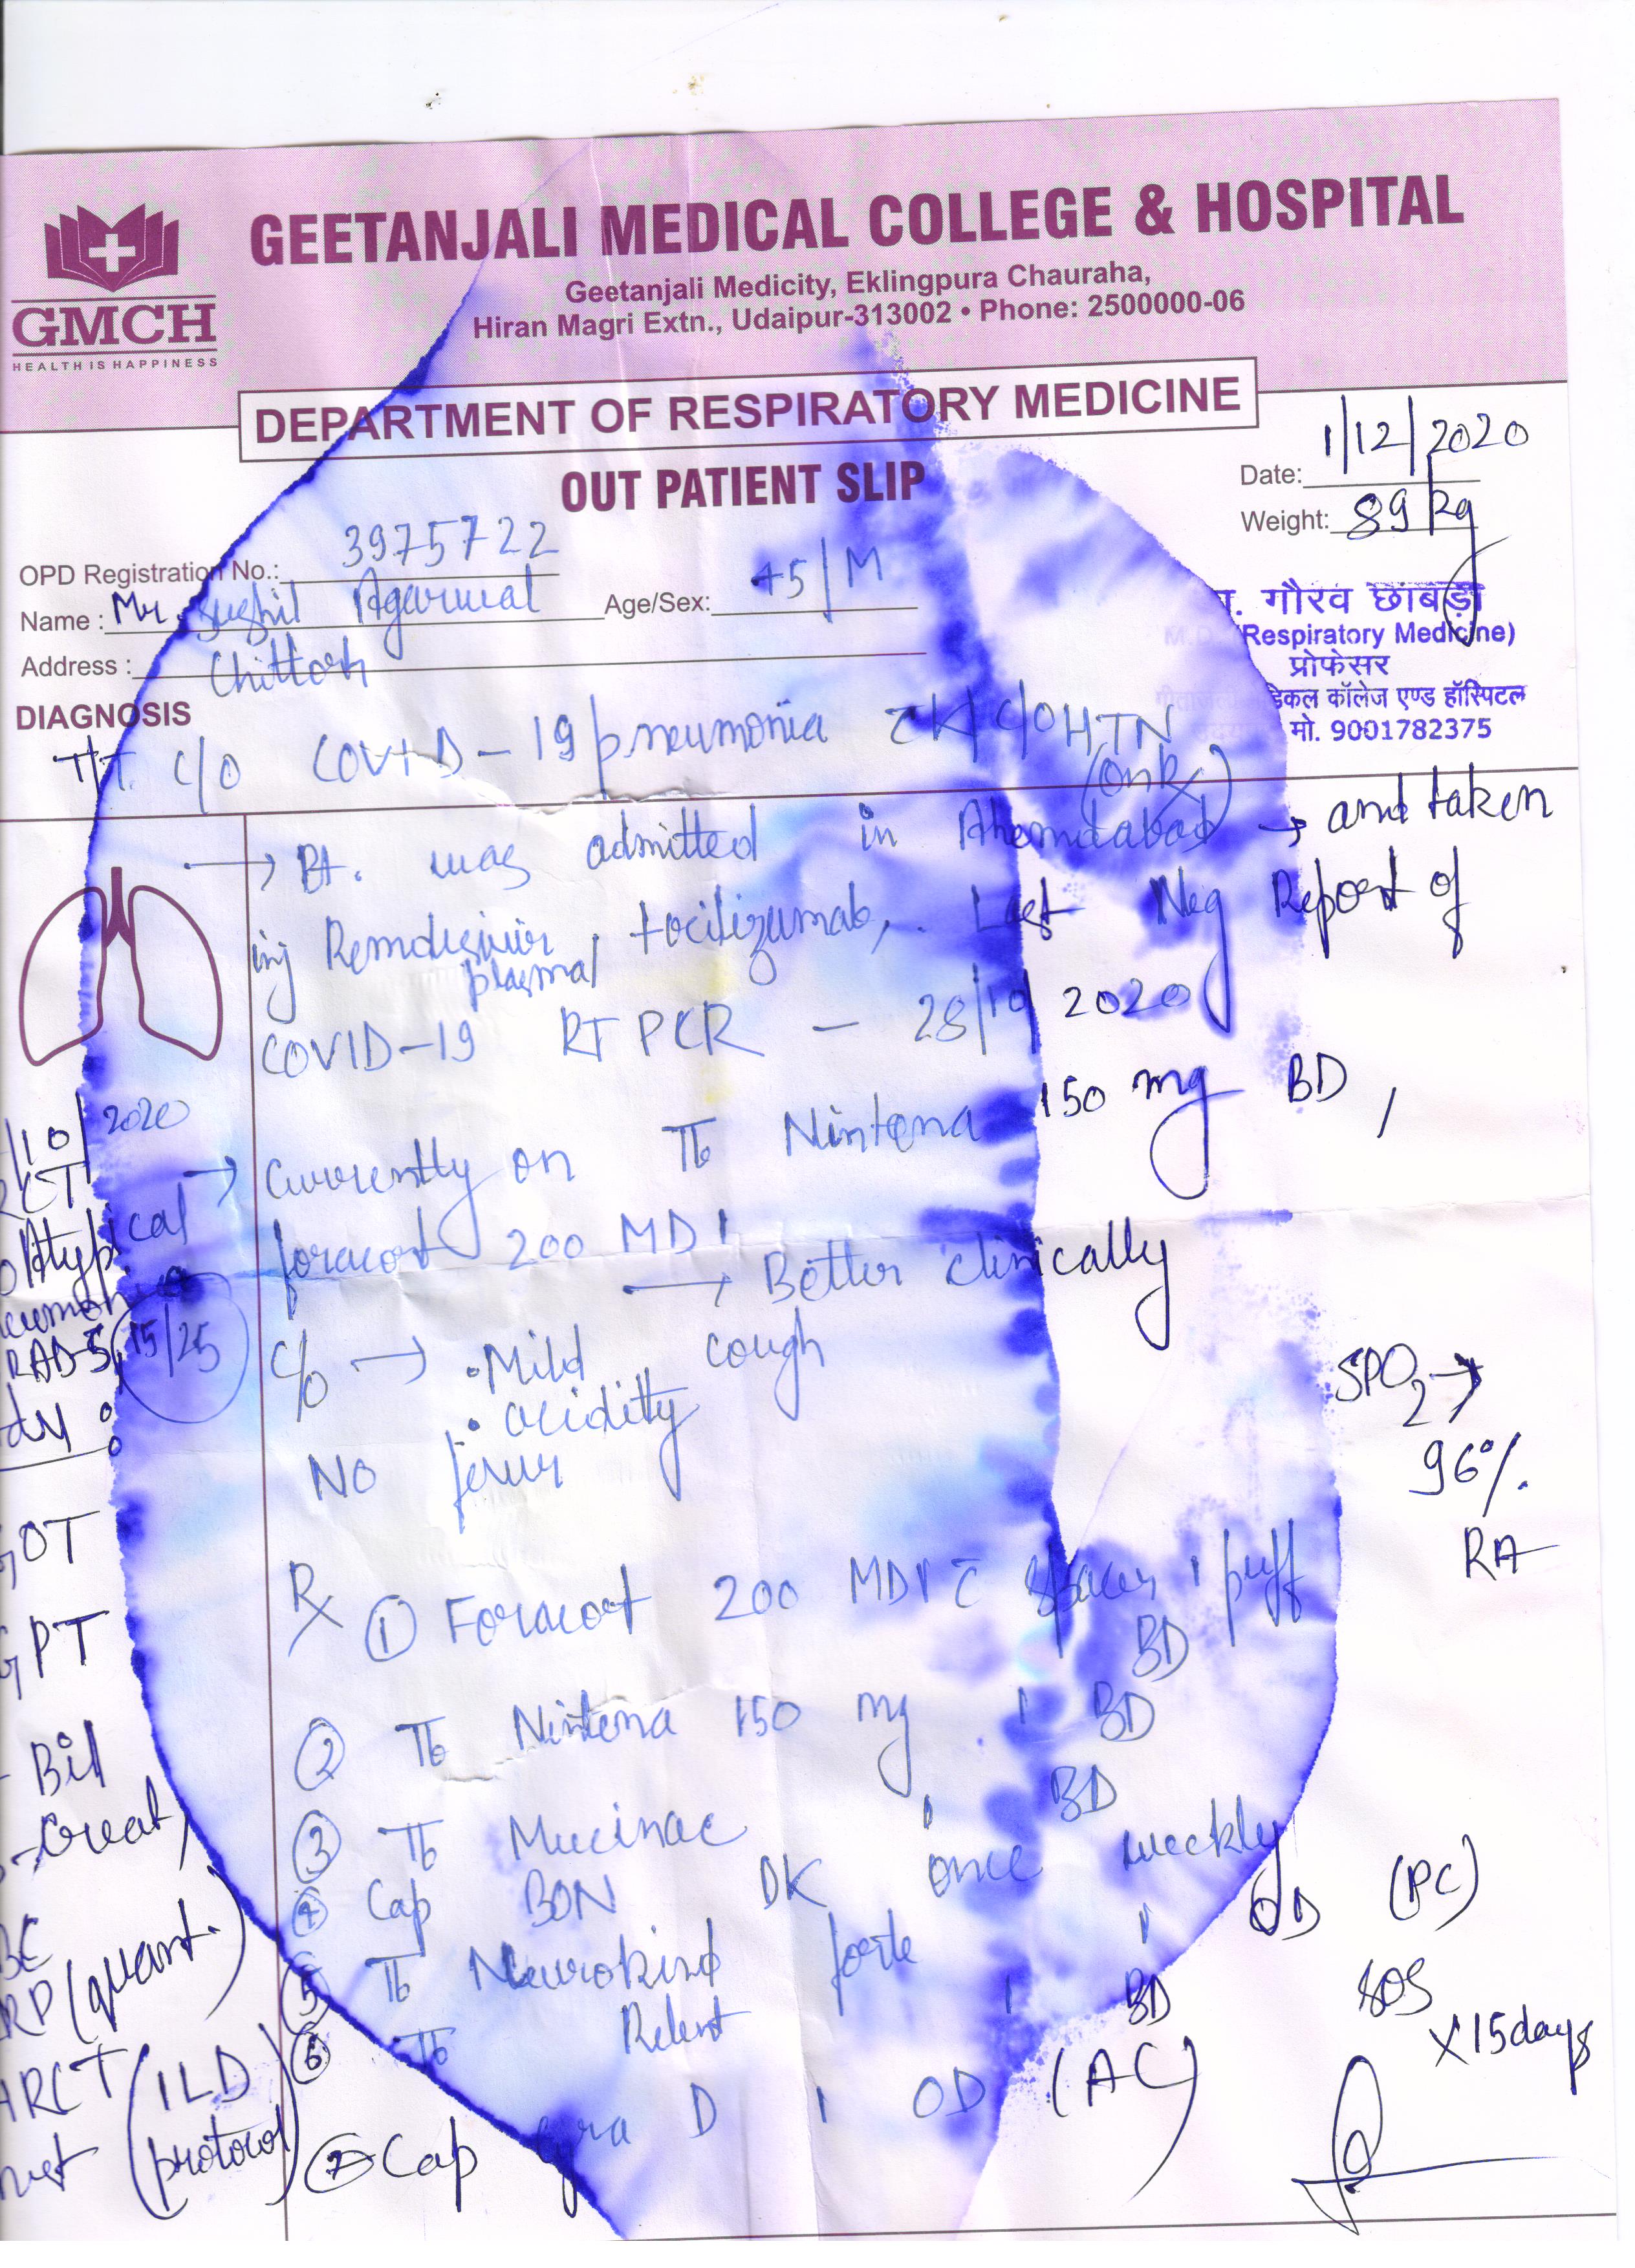 GEETANJALI MEDICAL COLLEGE & HOSPITAL
Geetanjali Medicity, Eklingpura Chauraha,
Hiran Magri Extn., Udaipur-313002 • Phone: 2500000-06
GMCH
HEALTH IS HAPPINESS
DEPARTMENT OF RESPIRATORY MEDICINE
OUT PATIENT SLIP
Date: 1/12/2020
Weight: 89 kg
OPD Registration No.: 3975722
Name : Mr. Sushil Agarwal Age/Sex: 45/M
Address : Chittorh
गौरव छाबड़ा
(Respiratory Medicine)
प्रोफेसर
मेडिकल कॉलेज एण्ड हॉस्पिटल
मो. 9001782375
DIAGNOSIS
T/t. c/o COVID-19 pneumonia c K/c/o HTN
(on Rx)
→ Pt. was admitted in Ahemdabad → and taken
inj Remdesivir, tocilizumab, Last Neg Report of
plasma
COVID-19 RT PCR - 28/10/2020
→ Currently on Tb Nintena 150 mg BD,
foracort 200 MDI
→ Better clinically
c/o → . Mild cough
. acidity
No fever
SPO2 →
96%
RA
/10/2020
RCT
Atypical
RAD-5, 15/25
GOT
GPT
Bil
Creat
RP (quant.)
HRCT (ILD
protocol)
Rx ① Foracort 200 MDI c spacer 1 puff
BD
② Tb Nintena 150 mg 1 BD
③ Tb Mucinac 1 BD
④ Cap BON DK once weekly
⑤ Tb Neurokind forte 1 OD (PC)
⑥ Tb Relent 1 BD SOS
X 15 days
⑦ Cap Cyra D 1 OD (AC)